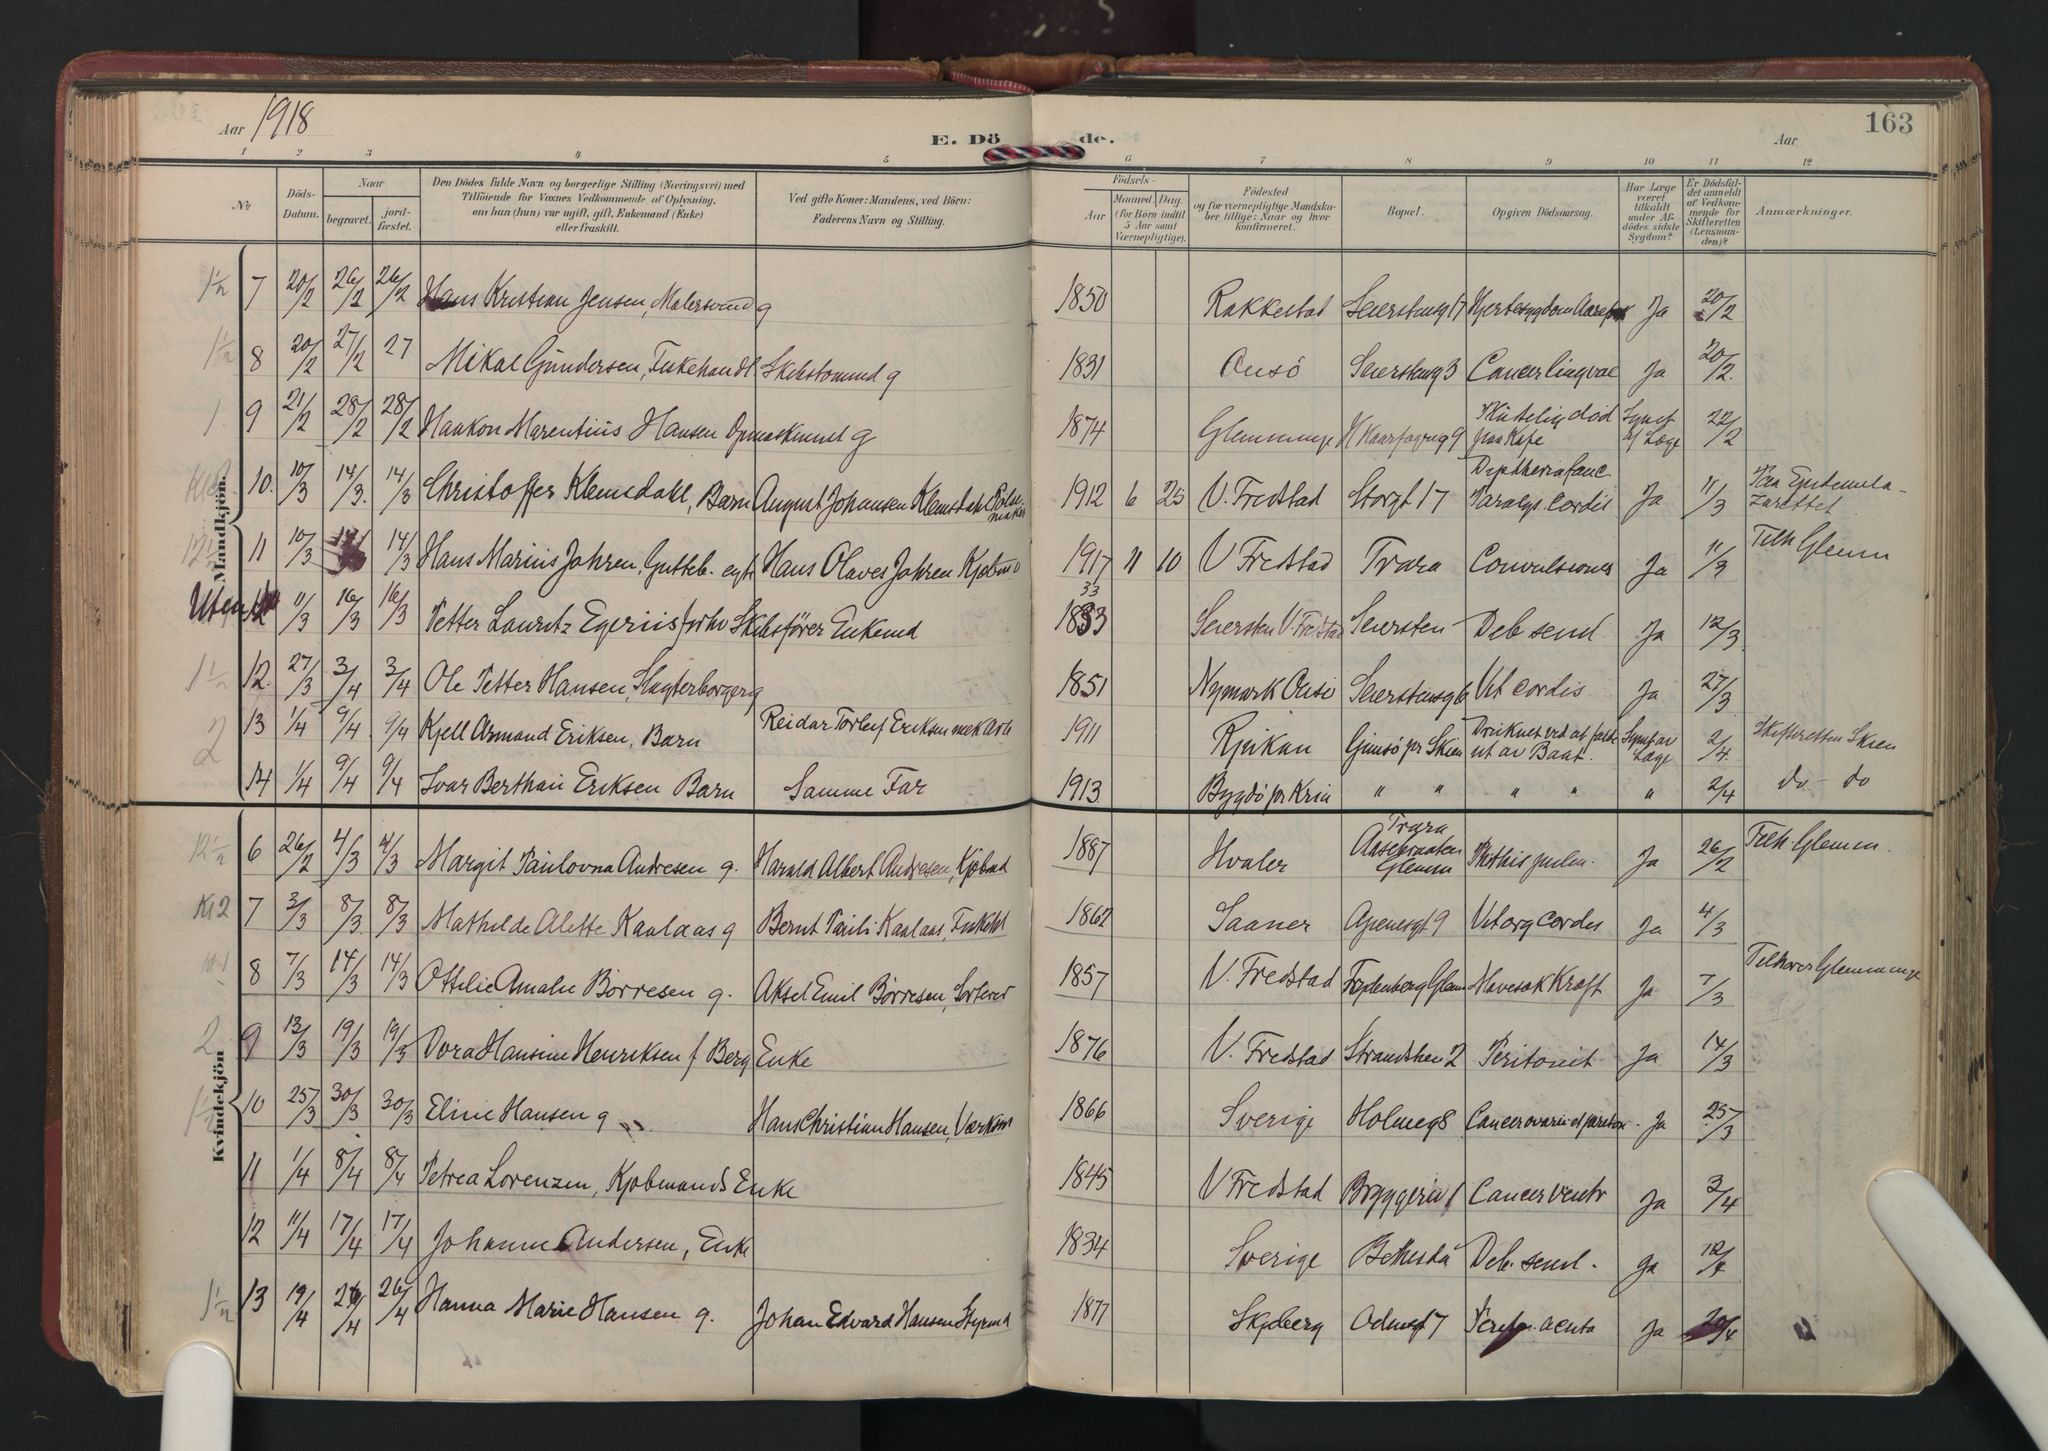 Aar 1918
E. Dö de.
Aar
163
1 2 3 4 5 6 7 8 9 10 11 12
No
Döds-Datum.
Naar
begravet.
jord-fæstet.
Den Dödes fulde Navn og borgerlige Stilling (Næringsvei) med
Tilföiende for Voxnes Vedkommende af Oplysning,
om han (hun) var ugift, gift, Enkemand (Enke)
eller fraskilt.
Ved gifte Koner: Mandens, ved Börn:
Faderens Navn og Stilling.
Födsels-
Aar
Maaned. Dag.
(for Börn indtil
5 Aar samt
Værnepligtige).
Födested
og for værnepligtige Mandsku-
ber tillige: Naar og hvor
konfirmeret.
Bopæl.
Opgiven Dödsaarsag.
Har Læge
været
tilkaldt
under Af-
dödes sidste
Sygdom?
Er Dödsfal-
det anmeldt
af Vedkom-
mende for
Skifteretten
(Lensman-
den)?
Anmærkninger.
Mandkjön.
1½ 7 20/2 26/2 26/2 Hans Kristian Jensen, Malersvend g 1850 Rakkestad Seierstensg 17 Hjertesygdom Ja 20/2
1½ 8 20/2 27/2 27 Mikal Gundersen, Fiskehandl Skibstømmd g 1831 Onsö Seierstensg 3 Cancer lingvae Ja 20/2.
1. 9 21/2 28/2 28/2 Haakon Marentius Hansen g 1874 Glemminge H Kaarfagreg 9 Pludselig död paa Kafe Synet af Læge 22/2
10. 10/3 14/3. 14/3 Christoffer Klemsdahl, Barn August Johansen Klemsdahl Pölsemaker 1912 6 25 V. Fredstad Storgt 17 Diphtheria fauc. Paralys. cordis Ja 11/3 Paa Epidemila-zarettet
12½ 11 10/3 14/3 Hans Marius Johren, Gutteb. egt. Hans Olaves Johren Kjøbm 1917 11 10 V Fredstad Trara Convulsiones Ja 11/3 Tilh Glemm
Uten 11/3 16/3 16/3 Petter Lauritz Egeriis forhv Skibsförer Enkemd 1833 33 Seiersten V. Fredstad Seiersten Deb senil. Ja 12/3
1½ 12. 27/3 3/4 3/4 Ole Petter Hansen, Slagterborger g 1851 Nymark Onsö Seierstensg 6 Vit cordis Ja 27/3
2 13 1/4 9/4 9/4 Kjell Armand Eriksen, Barn Reidar Torleif Eriksen mek Arb 1911 Rjukan Gimsö pr Skien Druknet ved at falde ut av Baat. Synet av Læge 2/4. Skifteretten Skien
14 1/4 9/4 9/4 Ivar Berthan Eriksen Barn Samme Far 1913 Bygdö pr Kria " " " " " 2/4 do do
Kvindekjön
12½ 6 26/2 4/3 4/3 Margit Paulovna Andresen g. Harald Albert Andresen, 1887 Hvaler Trara Glemm Phthis pulm. Ja 26/2 Tilh Glemm.
Kl 2 7 3/3 8/3 8/3 Mathilde Alette Kaalaas g Bernt Pauli Kaalaas, 1862 Saaner Apenesgt 9 Vit org Cordis Ja 4/3
8 7/3 14/3 14/3 Ottilie Amalie Börresen g. Aksel Emil Börresen, Sorterer 1857 V. Fredstad Glem Mavesæk Kræft Ja 7/3 Tilhører Glemminge
2 9 13/3 19/3 19/3 Dora Hansine Henriksen f Berg Enke 1876 V. Fredstad Strandshen 2 Peritonit Ja 14/3
1½ 10 25/3 30/3 30/3 Eline Hansen g Hans Christian Hansen, Værksm 1866 Sverige Holmeg 8 Cancer ovarii et periton. Ja 25/3
11 1/4 8/4 8/4 Petrea Lorenzen, Kjøbmands Enke 1845 V Fredstad Bryggeriv 1 Cancer ventr Ja 3/4
12 11/4 17/4 17/4 Johanne Andersen, Enke 1834 Sverige Bethesda Deb. senil. ja 12/4
1½ 13 19/4 26/4 26/4 Hanna Marie Hansen g. Johan Edvard Hansen Styrmd 1877 Skjeberg Odinsgt 7 acuta Ja 20/4